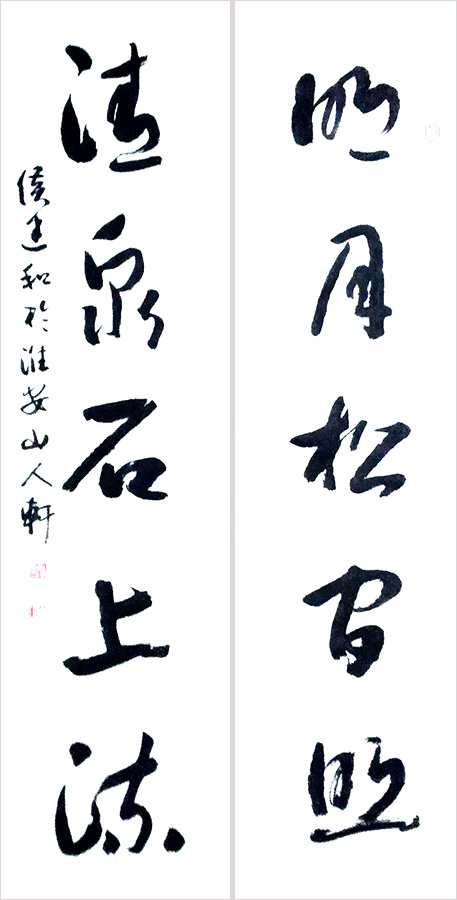 明月松间照
清泉石上流
侯建和於淮安山人軒